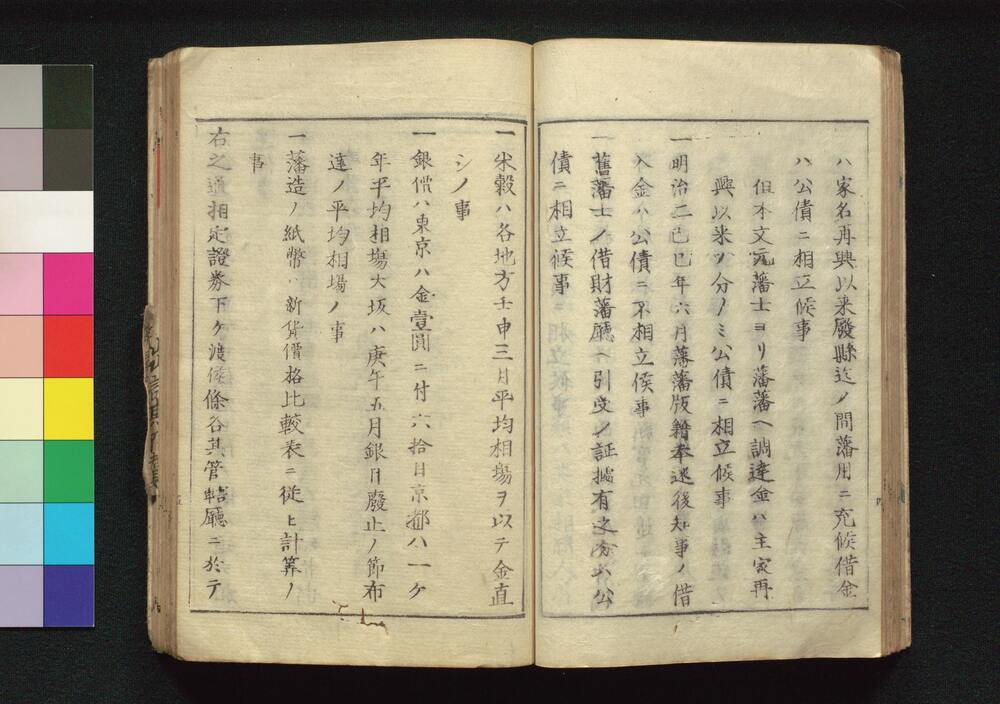 ハ家名再興以来廢縣迄ノ間藩用ニ充候借金
ハ公債ニ相立候事
但本文元藩士ヨリ藩藩ヘ調達金ハ主家再
興以来ノ分ノミ公債ニ相立候事
一明治二己巳年六月藩藩版籍奉還後知事ノ借
入金ハ公債ニ不相立候事
一舊藩士ノ借財藩廳ヘ引受ノ証據有之分ハ公
債ニ相立候事
一米穀ハ各地方壬申三月平均相場ヲ以テ金直
シノ事
一銀價ハ東京ハ金壹圓ニ付六拾目京都ハ一ケ
年平均相塲大坂ハ庚午五月銀目廢止ノ節布
達ノ平均相場ノ事
一藩造ノ紙幣ハ新貨價格比較表ニ従ヒ計算ノ
事
右之通相定證券下ケ渡候條各其管轄廳ニ於テ